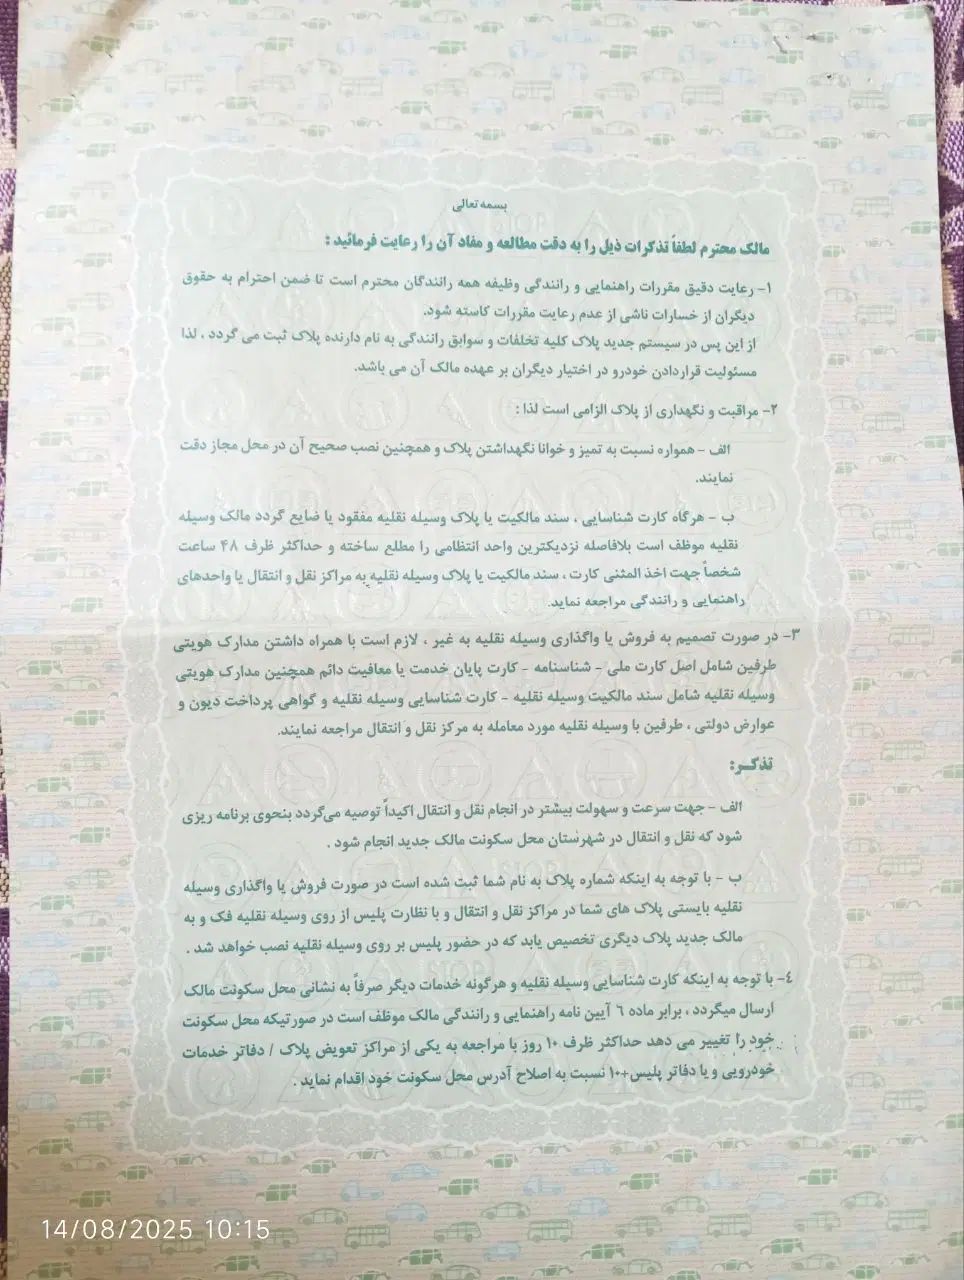 بسمه تعالی
مالک محترم لطفاً تذکرات ذیل را به دقت مطالعه و مفاد آن را رعایت فرمائید :
۱- رعایت دقیق مقررات راهنمایی و رانندگی وظیفه همه رانندگان محترم است تا ضمن احترام به حقوق
دیگران از خسارات ناشی از عدم رعایت مقررات کاسته شود.
از این پس در سیستم جدید پلاک کلیه تخلفات و سوابق رانندگی به نام دارنده پلاک ثبت می گردد ، لذا
مسئولیت قراردادن خودرو در اختیار دیگران بر عهده مالک آن می باشد.
۲- مراقبت و نگهداری از پلاک الزامی است لذا :
الف - همواره نسبت به تمیز و خوانا نگهداشتن پلاک و همچنین نصب صحیح آن در محل مجاز دقت
نمایند.
ب - هرگاه کارت شناسایی ، سند مالکیت یا پلاک وسیله نقلیه مفقود یا ضایع گردد مالک وسیله
نقلیه موظف است بلافاصله نزدیکترین واحد انتظامی را مطلع ساخته و حداکثر ظرف ۴۸ ساعت
شخصاً جهت اخذ المثنی کارت ، سند مالکیت یا پلاک وسیله نقلیه به مراکز نقل و انتقال یا واحدهای
راهنمایی و رانندگی مراجعه نماید.
۳- در صورت تصمیم به فروش یا واگذاری وسیله نقلیه به غیر ، لازم است با همراه داشتن مدارک هویتی
طرفین شامل اصل کارت ملی - شناسنامه - کارت پایان خدمت یا معافیت دائم همچنین مدارک هویتی
وسیله نقلیه شامل سند مالکیت وسیله نقلیه - کارت شناسایی وسیله نقلیه و گواهی پرداخت دیون و
عوارض دولتی ، طرفین با وسیله نقلیه مورد معامله به مرکز نقل و انتقال مراجعه نمایند.
تذکـر:
الف - جهت سرعت و سهولت بیشتر در انجام نقل و انتقال اکیداً توصیه می‌گردد بنحوی برنامه ریزی
شود که نقل و انتقال در شهرستان محل سکونت مالک جدید انجام شود .
ب - با توجه به اینکه شماره پلاک به نام شما ثبت شده است در صورت فروش یا واگذاری وسیله
نقلیه بایستی پلاک های شما در مراکز نقل و انتقال و با نظارت پلیس از روی وسیله نقلیه فک و به
مالک جدید پلاک دیگری تخصیص یابد که در حضور پلیس بر روی وسیله نقلیه نصب خواهد شد .
٤- با توجه به اینکه کارت شناسایی وسیله نقلیه و هرگونه خدمات دیگر صرفاً به نشانی محل سکونت مالک
ارسال میگردد ، برابر ماده ٦ آیین نامه راهنمایی و رانندگی مالک موظف است در صورتیکه محل سکونت
خود را تغییر می دهد حداکثر ظرف ۱۰ روز با مراجعه به یکی از مراکز تعویض پلاک / دفاتر خدمات
خودرویی و یا دفاتر پلیس+۱۰ نسبت به اصلاح آدرس محل سکونت خود اقدام نماید .
14/08/2025 10:15